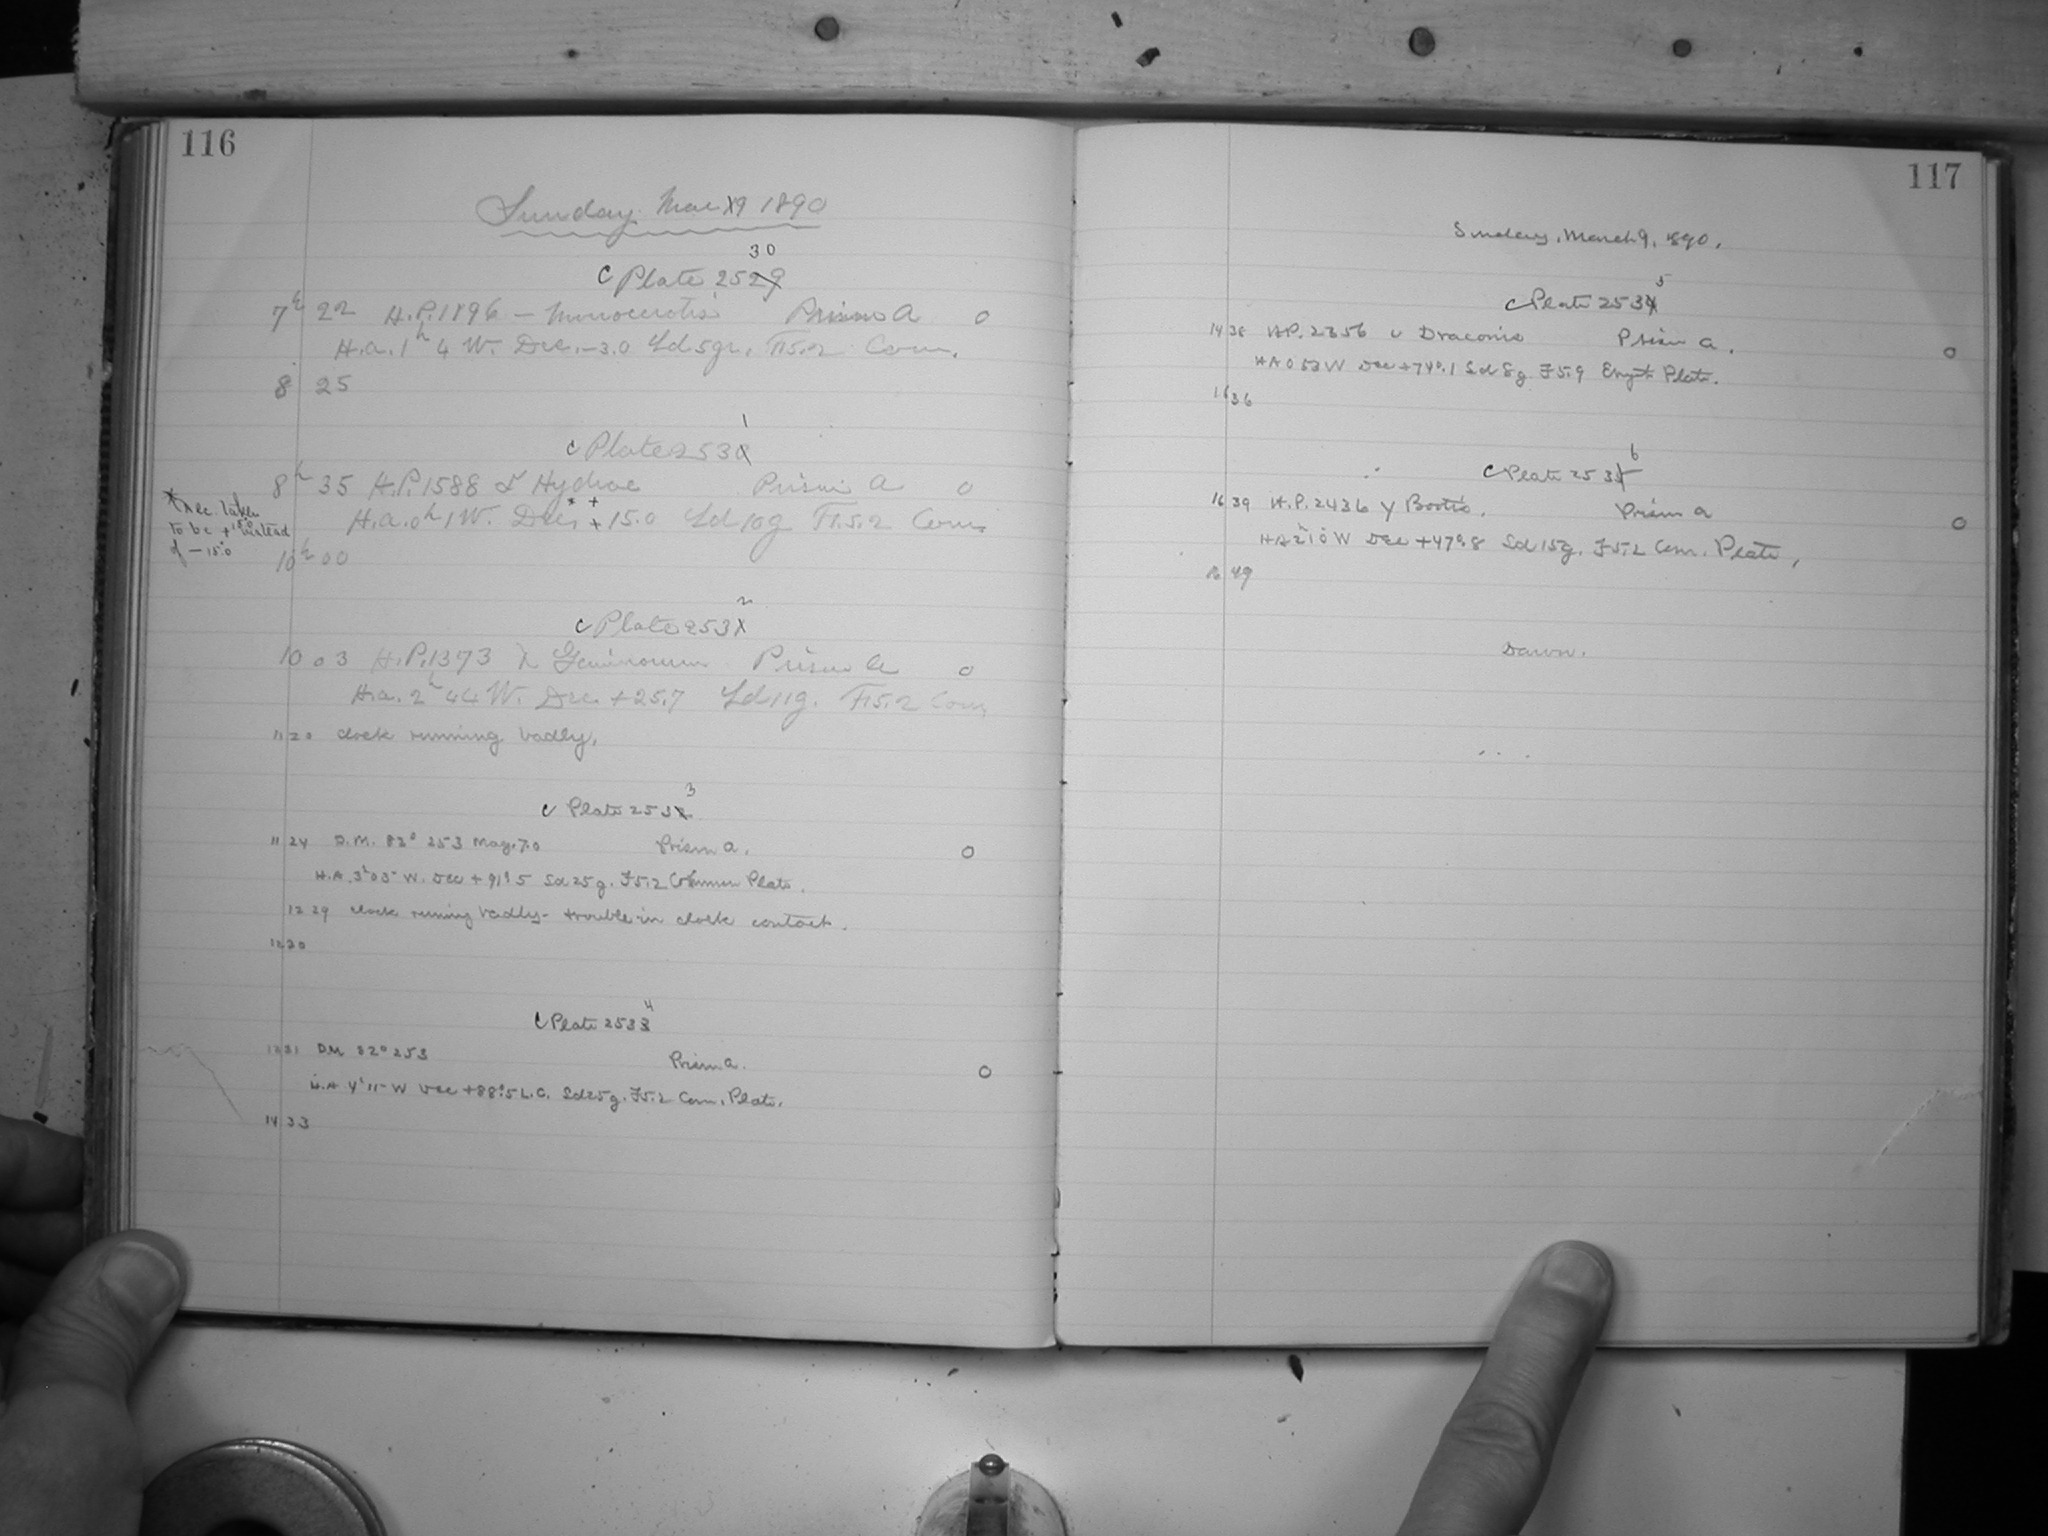 116
Sunday Mar 9 1890
30
C Plate 2529
7h 22 H.P. 1896 – Monocerotis Prism A 0
H.a. 1h 4 W. Dec. –3.0 Sd 5gr. F15.2 Com.
8 25
1
C Plate 2530
8h 35 H.P. 1588 Hydrae Prism A 0
H.a. 0h 1 W. Dec.* + 15.0 Sd 10g F15.2 Com.
*Dec. taken
to be +15.0 instead
of –15.0
10h 00
2
C Plate 2531
10 03 H.P. 1373 λ Geminorum Prism A 0
H.a. 2h 44 W. Dec. +25.7 Sd 11g. F15.2 Com.
11 20 clock running badly.
3
C Plate 2532
11 24 D.M. 82° 253 Mag. 7.0 Prism a. 0
H.A. 3h 05 W. Dec +91°5 Sd 25g. F5.2 Common Plate.
12 29 clock running badly - trouble in clock contact.
12 30
4
C Plate 2533
12 31 DM 82° 253 Prism a. 0
H.A 4h 11 W Dec +88°.5 L.C. Sd 25g. F5.2 Com. Plate.
14 33
117
Sunday, March 9, 1890.
5
C Plate 2534
14 38 H.P. 2356 υ Draconis Prism a. 0
HA 0 53 W Dec +74°.1 Sd 8g F5.9 Eryth Plate.
16 36
6
C Plate 2535
16 39 H.P. 2436 γ Bootis. Prism a 0
HA 2h 10 W Dec +47°.8 Sd 15g. F5.2 Com. Plate,
16 49
Dawn.